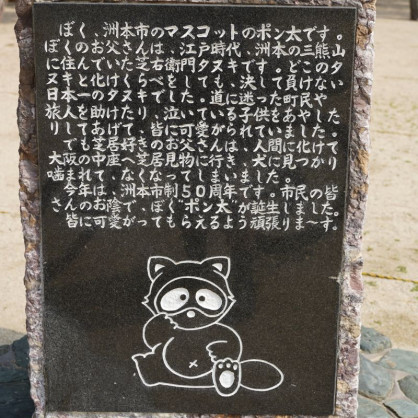 ぼく、洲本市のマスコットのポン太です。
ぼくのお父さんは、江戸時代、洲本の三熊山
に住んでいた芝右衛門タヌキです。どこのタ
ヌキと化けくらべをしても、決して負けない
日本一のタヌキでした。道に迷った町民や
旅人を助けたり、泣いている子供をあやした
りしてあげて、皆に可愛がられていました。
でも芝居好きのお父さんは、人間に化けて
大阪の中座へ芝居見物に行き、犬に見つかり
噛まれて、なくなってしまいました。
今年は、洲本市制50周年です。市民の皆
さんのお陰で、ぼく“ポン太”が誕生しました。
皆に可愛がってもらえるよう頑張りま〜す。